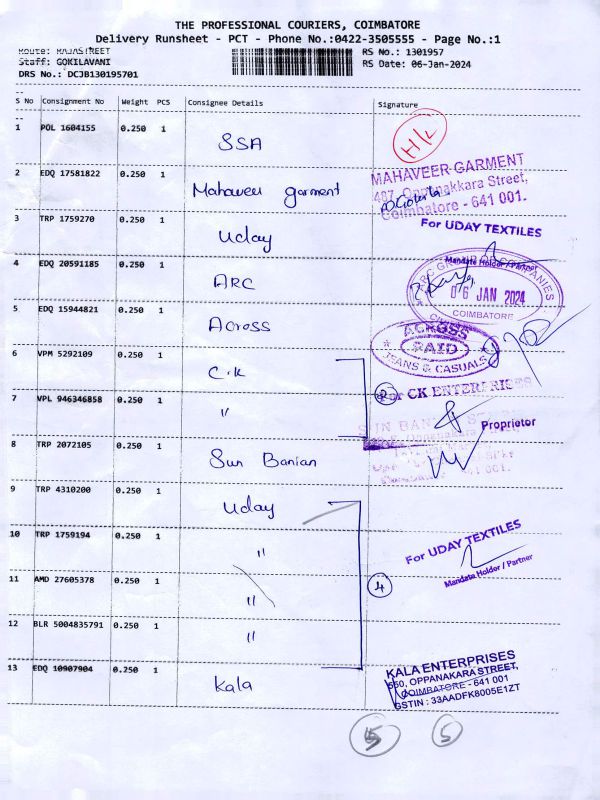 THE PROFESSIONAL COURIERS, COIMBATORE
Delivery Runsheet - PCT - Phone No.:0422-3505555 - Page No.:1
Route: RAJASTREET
RS No.: 1301957
Staff: GOKILAVANI
RS Date: 06-Jan-2024
DRS No.: DCJB130195701
S No Consignment No Weight PCS Consignee Details Signature
1 POL 1604155 0.250 1 SSA
H/L
2 EDQ 17581822 0.250 1 Mahaveer garment
MAHAVEER GARMENT
487, Oppanakkara Street,
Coimbatore - 641 001.
3 TRP 1759270 0.250 1 Uday
For UDAY TEXTILES
Mandate Holder / Partner
4 EDQ 20591185 0.250 1 ARC
ARC GROUP OF COMPANIES
06 JAN 2024
COIMBATORE
5 EDQ 15944821 0.250 1 Across
ACROSS
RAID
JEANS & CASUALS
6 VPM 5292109 0.250 1 C.K
2
For CK ENTERPRISES
7 VPL 946346858 0.250 1 "
Proprietor
8 TRP 2072105 0.250 1 Sun Banian
SUN BANIAN
9 TRP 4310200 0.250 1 Uday
10 TRP 1759194 0.250 1 "
For UDAY TEXTILES
Mandate Holder / Partner
11 AMD 27605378 0.250 1 "
4
12 BLR 5004835791 0.250 1 "
13 EDQ 10907904 0.250 1 Kala
KALA ENTERPRISES
550, OPPANAKARA STREET,
COIMBATORE - 641 001
GSTIN : 33AADFK8005E1ZT
5 5